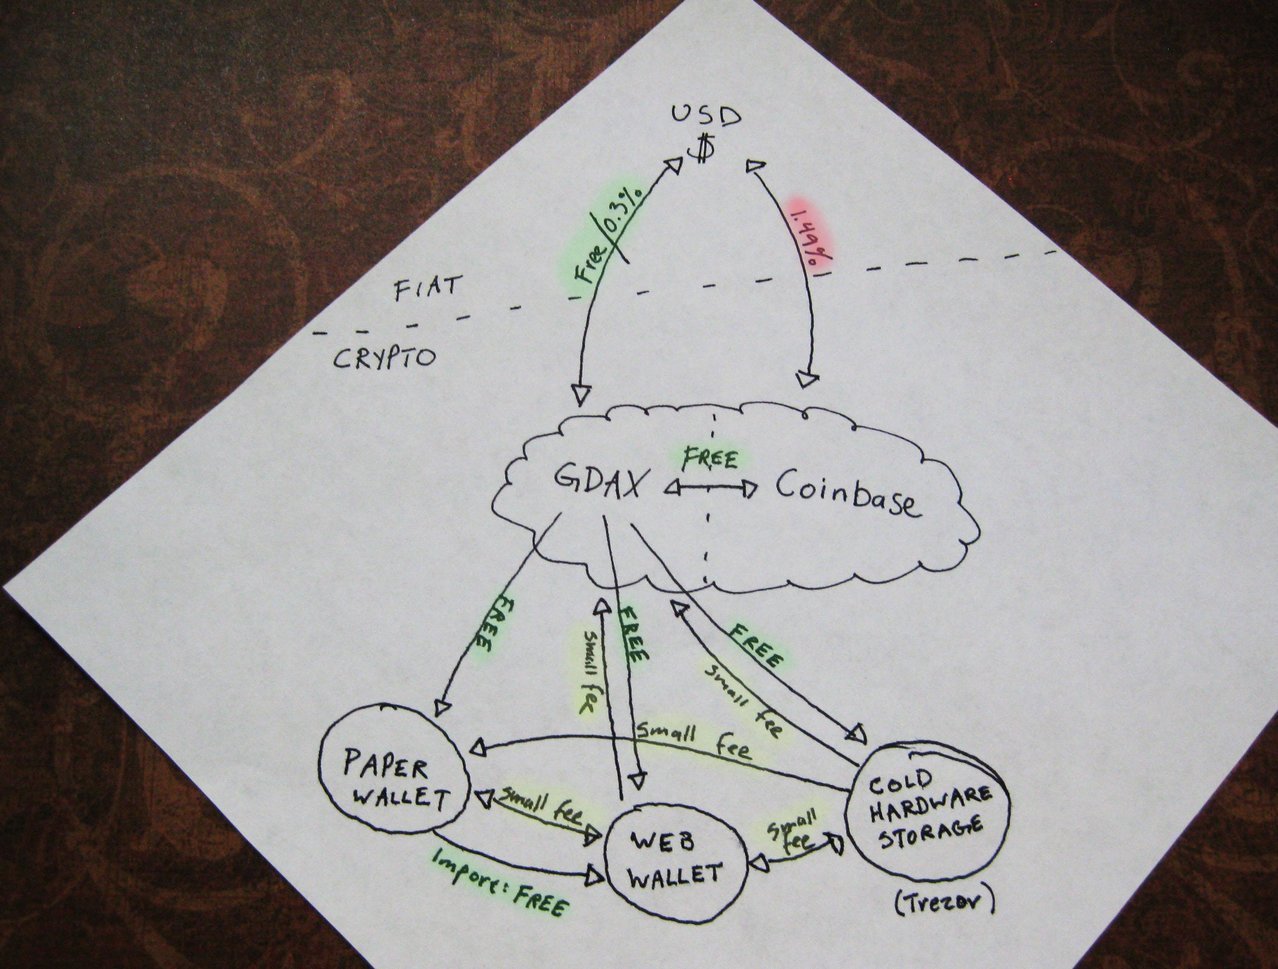 USD
$
Free / 0.3%
1.49%
FIAT
CRYPTO
FREE
GDAX
Coinbase
FREE
small fee
FREE
FREE
small fee
small fee
PAPER
WALLET
small fee
Import: FREE
WEB
WALLET
small
fee
COLD
HARDWARE
STORAGE
(Trezor)